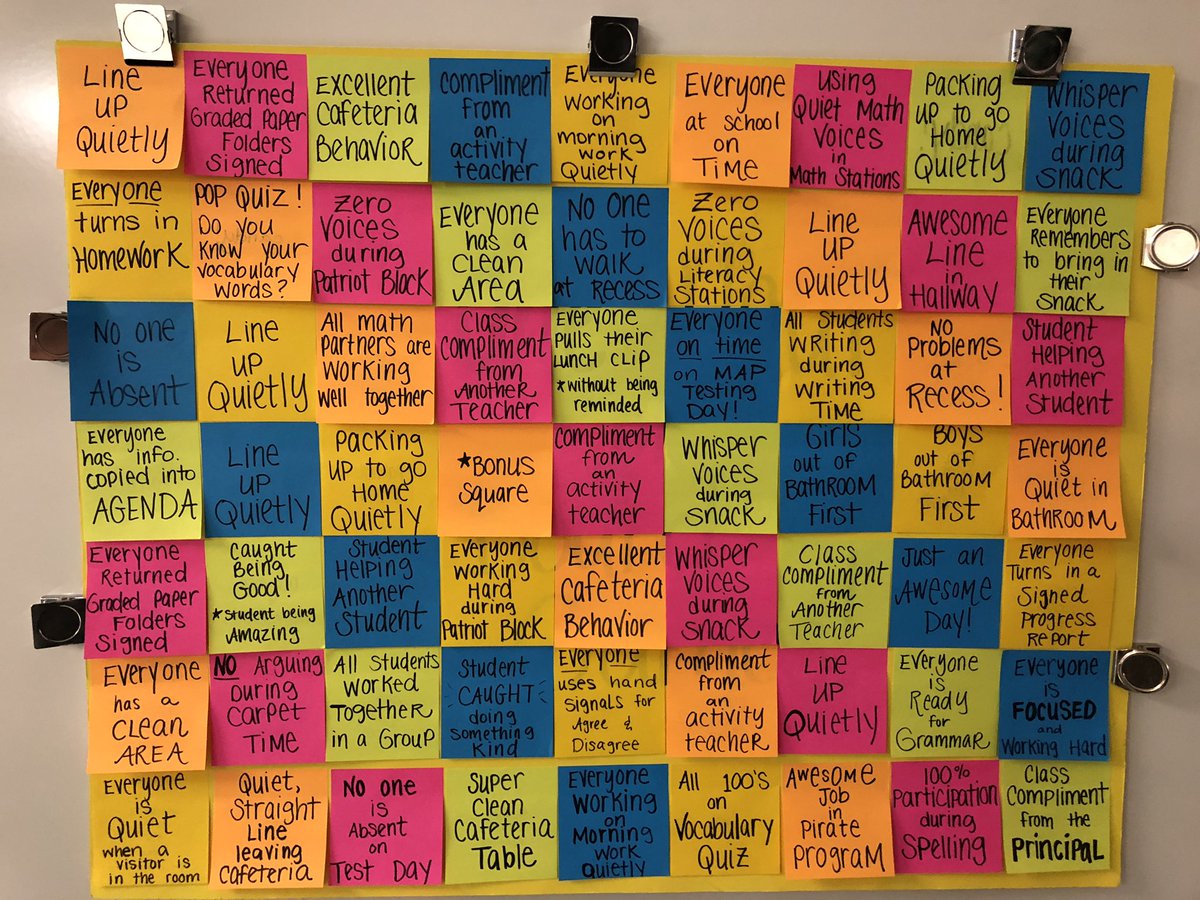 Line
up
Quietly
Everyone
Returned
Graded Paper
Folders
Signed
Excellent
Cafeteria
Behavior
Compliment
from
an
activity
teacher
Everyone
working
on
morning
work
Quietly
Everyone
at school
on
Time
Using
Quiet Math
Voices
in
Math Stations
Packing
up to go
Home
Quietly
Whisper
Voices
during
snack
Everyone
turns in
Homework
Pop Quiz!
Do you
Know your
Vocabulary
words?
Zero
Voices
during
Patriot Block
Everyone
has a
Clean
Area
No One
has to
walk
at Recess
Zero
Voices
during
Literacy
Stations
Line
up
Quietly
Awesome
Line
in
Hallway
Everyone
Remembers
to bring in
their
Snack
No one
is
Absent
Line
up
Quietly
All math
Partners are
Working
well together
Class
Compliment
from
Another
Teacher
Everyone
pulls their
Lunch Clip
*without being
reminded
Everyone
on time
on MAP
Testing
Day!
All Students
Writing
during
Writing
Time
No
Problems
at
Recess!
Student
Helping
Another
Student
Everyone
has info.
copied into
AGENDA
Line
up
Quietly
Packing
up to go
Home
Quietly
*Bonus
Square
Compliment
from
an
activity
teacher
Whisper
Voices
during
snack
Girls
out of
Bathroom
First
Boys
out of
Bathroom
First
Everyone
is
Quiet in
Bathroom
Everyone
Returned
Graded Paper
Folders
Signed
Caught
Being
Good!
*Student being
Amazing
Student
Helping
Another
Student
Everyone
Working
Hard
during
Patriot Block
Excellent
Cafeteria
Behavior
Whisper
Voices
during
snack
Class
Compliment
from
Another
Teacher
Just an
Awesome
Day!
Everyone
Turns in a
Signed
Progress
Report
Everyone
has a
Clean
Area
NO Arguing
During
Carpet
Time
All Students
Worked
Together
in a Group
Student
CAUGHT
doing
Something
Kind
Everyone
uses hand
signals for
Agree &
Disagree
Compliment
from
an
activity
teacher
Line
up
Quietly
Everyone
is
Ready
for
Grammar
Everyone
is
FOCUSED
and
Working Hard
Everyone
is
Quiet
when a
visitor is
in the room
Quiet,
Straight
Line
leaving
Cafeteria
No one
is
Absent
on
Test Day
Super
Clean
Cafeteria
Table
Everyone
Working
on
Morning
work
quietly
All 100's
on
Vocabulary
Quiz
Awesome
Job
in
Pirate
Program
100%
Participation
during
Spelling
Class
Compliment
from the
Principal